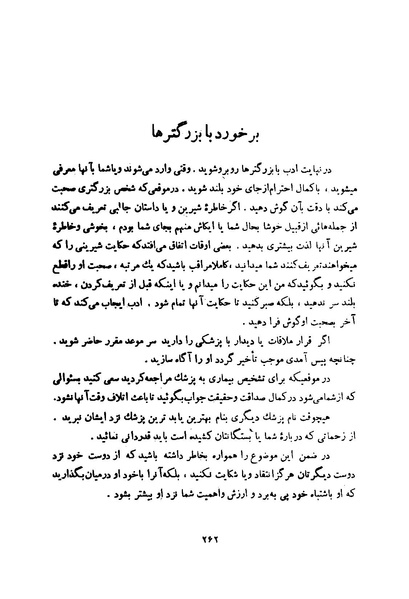 برخورد با بزرگترها
در نهایت ادب با بزرگترها روبرو شوید . وقتی وارد می‌شوند و یا شما بآنها معرفی
میشوید ، با کمال احترام از جای خود بلند شوید . در موقعی که شخص بزرگتری صحبت
می‌کند با دقت بآن گوش دهید . اگر خاطرهٔ شیرین و یا داستان جالبی تعریف می‌کنند
از جمله‌هائی از قبیل خوشا بحال شما یا ایکاش منهم بجای شما بودم ، بخوشی و خاطرهٔ
شیرین آنها لذت بیشتری بدهید . بعضی اوقات اتفاق می‌افتد که حکایت شیرینی را که
میخواهند تعریف کنند شما میدانید ، کاملا مراقب باشید که یک مرتبه ، صحبت او را قطع
نکنید و بگوئید که من این حکایت را میدانم و یا اینکه قبل از تعریف کردن ، خنده
بلند سر ندهید ، بلکه صبر کنید تا حکایت آنها تمام شود . ادب ایجاب می‌کند که تا
آخر بصحبت او گوش فرا دهید .
اگر قرار ملاقات یا دیدار با پزشکی را دارید سر موعد مقرر حاضر شوید .
چنانچه پیس آمدی موجب تأخیر گردد او را آگاه سازید .
در موقعیکه برای تشخیص بیماری به پزشک مراجعه کردید سعی کنید بسئوالی
که از شما می‌شود در کمال صداقت و حقیقت جواب بگوئید تا باعث اتلاف وقت آنها نشود.
هیچوقت نام پزشک دیگری بنام بهترین یا بد ترین پزشک نزد ایشان نبرید .
از زحماتی که دربارهٔ شما یا بستگانتان کشیده است باید قدردانی نمائید .
در ضمن این موضوع را همواره بخاطر داشته باشید که از دوست خود نزد
دوست دیگرتان هرگز انتقاد و یا شکایت نکنید ، بلکه آنرا با خود او در میان بگذارید
که او باشتباه خود پی به‌برد و ارزش و اهمیت شما نزد او بیشتر بشود .
۲۶۲